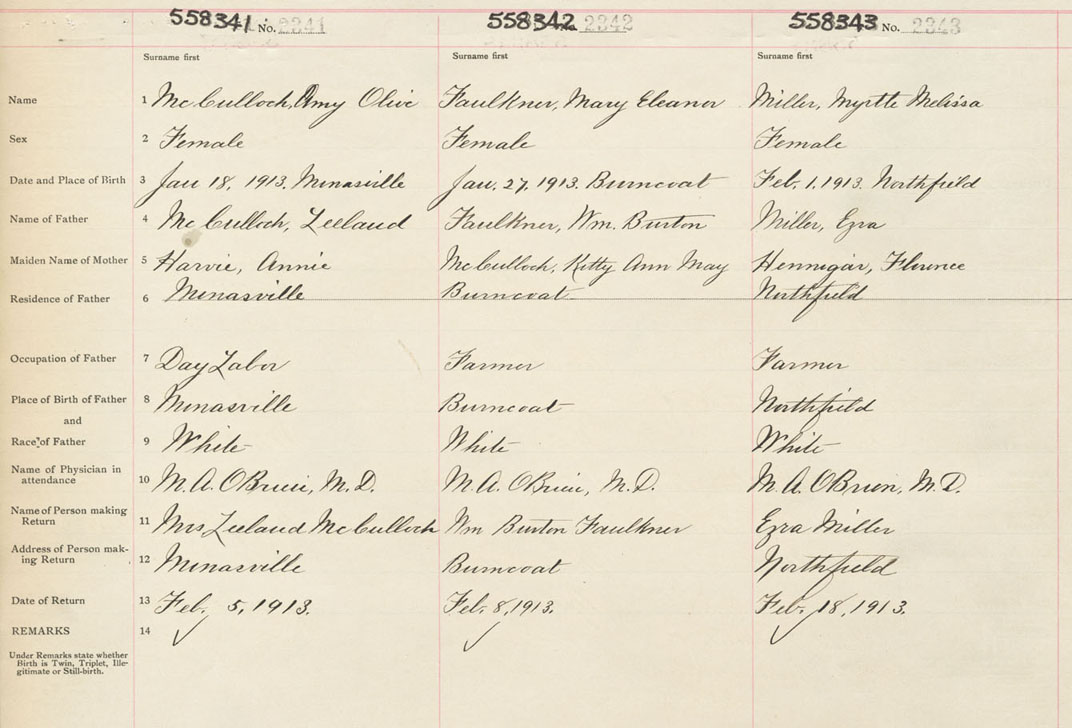 558341 No. 2341 558342 No. 2342 558343 No. 2343
Surname first Surname first Surname first
Name 1 McCulloch, Amy Olive Faulkner, Mary Eleanor Miller, Myrtle Melissa
Sex 2 Female Female Female
Date and Place of Birth 3 Jan 18, 1913. Minasville Jan. 27, 1913. Burncoat Feb. 1. 1913. Northfield
Name of Father 4 McCulloch, Leeland Faulkner, Wm. Burton Miller, Ezra
Maiden Name of Mother 5 Harvie, Annie McCulloch, Kitty Ann May Hennigar, Florence
Residence of Father 6 Minasville Burncoat Northfield
Occupation of Father 7 Day Labor Farmer Farmer
Place of Birth of Father 8 Minasville Burncoat Northfield
and
Race of Father 9 White White White
Name of Physician in
attendance 10 M. A. O'Brien, M. D. M. A. O'Brien, M. D. M. A. O'Brien, M. D.
Name of Person making
Return 11 Mrs Leeland McCulloch Wm Burton Faulkner Ezra Miller
Address of Person mak-
ing Return 12 Minasville Burncoat Northfield
Date of Return 13 Feb. 5, 1913. Feb. 8, 1913. Feb. 18, 1913.
REMARKS 14
Under Remarks state whether
Birth is Twin, Triplet, Ille-
gitimate or Still-birth.